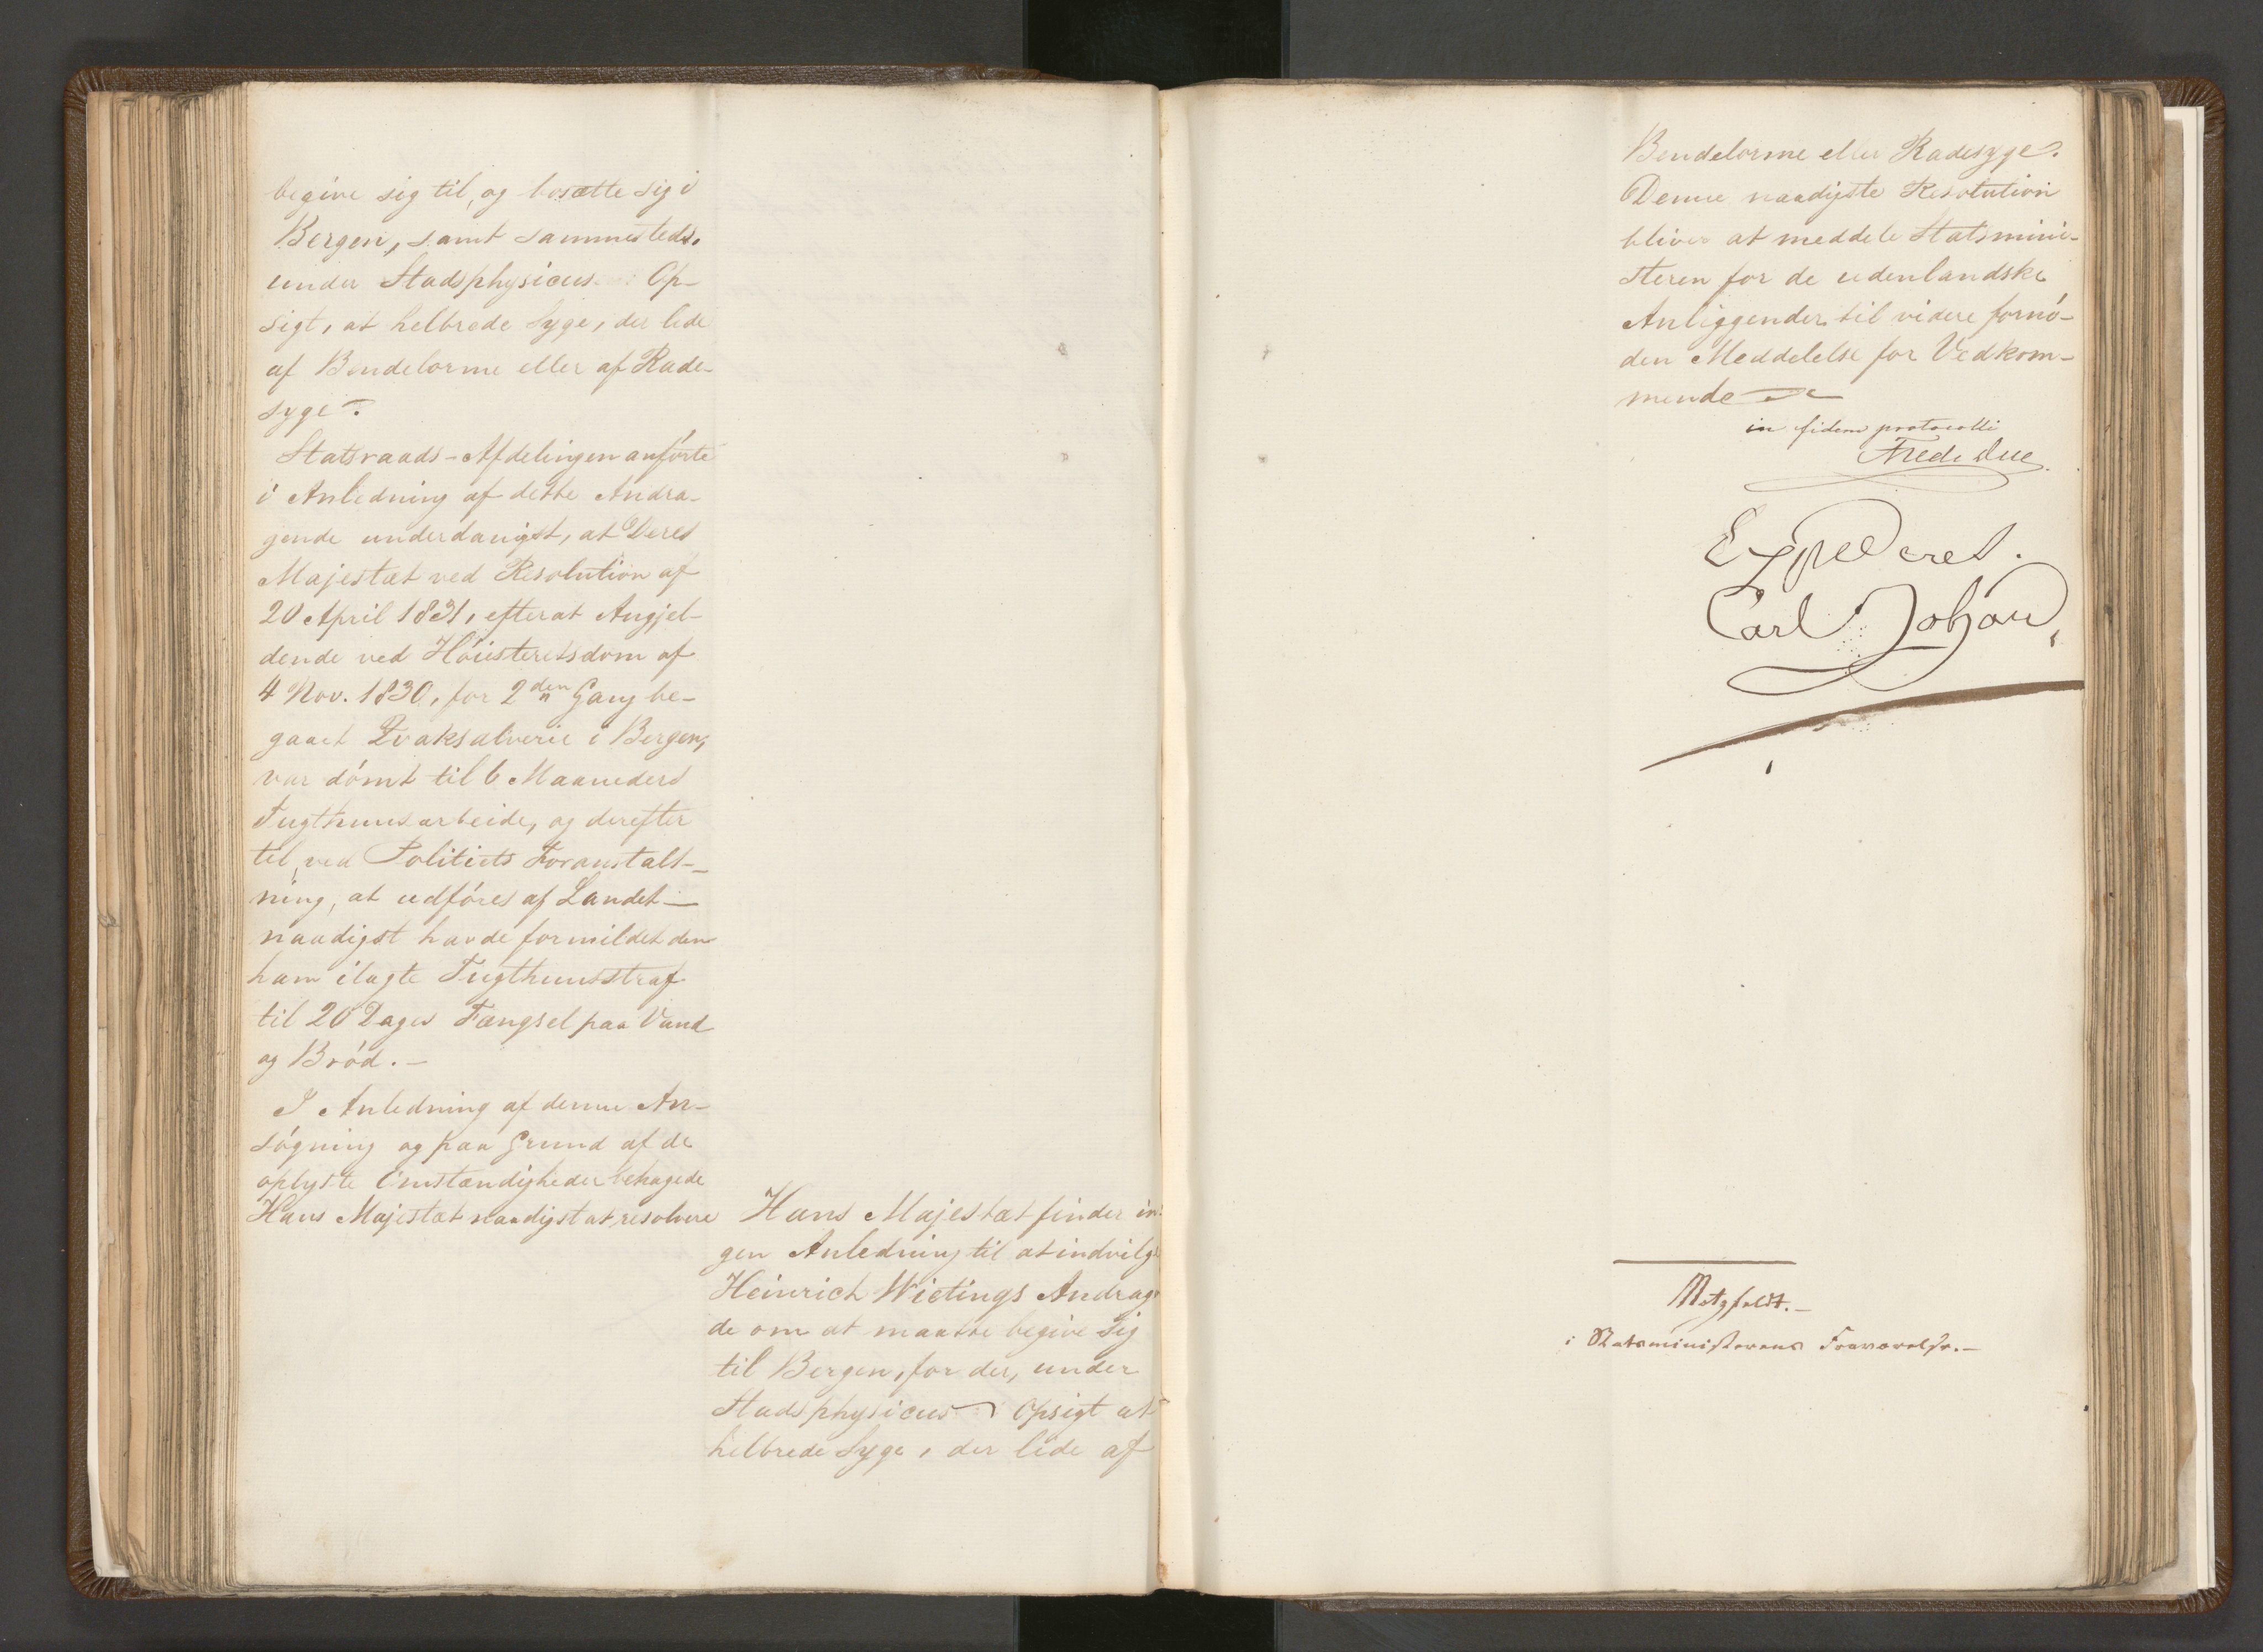 begive sig til, og bosætte sig i
Bergen, samt sammesteds,
under Stadsphysicus Op-
sigt, at helbrede Syge, der lide
af Bendelorme eller af Rade-
syge.
Statsraads-Afdelingen anførte
i Anledning af dette Andra-
gende underdanigst, at Deres
Majestæt ved Resolution af
20 April 1831, efterat Angjel-
dende ved Høiesteretsdom af
4 Nov. 1830, for 2den Gang be-
gaaet Qvaksalverie i Bergen,
var dømt til 6 Maaneders
Tugthuusarbeide, og derefter
til, ved Politiets Foranstalt-
ning, at udføres af Landet —
naadigst havde formildet den
ham ilagte Tugthuusstraf
til 20 Dages Fængsel paa Vand
og Brød. —
I Anledning af denne An-
søgning og paa Grund af de
oplyste Omstændigheder behagede
Hans Majestæt naadigst at resolvere
Hans Majestæt finder in-
gen Anledning til at indvilge
Heinrich Wietings Andragen-
de om at maatte begive sig
til Bergen, for der, under
Stadsphysicus Opsigt at
helbrede Syge, der lide af
Bendelorme eller Radesyge.
Denne naadigste Resolution
bliver at meddele Statsmini-
steren for de udenlandske
Anliggender til videre fornø-
den Meddelelse for Vedkom-
mende
in fidem protocolli
Fred. Due.
Expederet.
Carl Johan
Motzfeldt. —
i Statsministerens Fraværelse. —